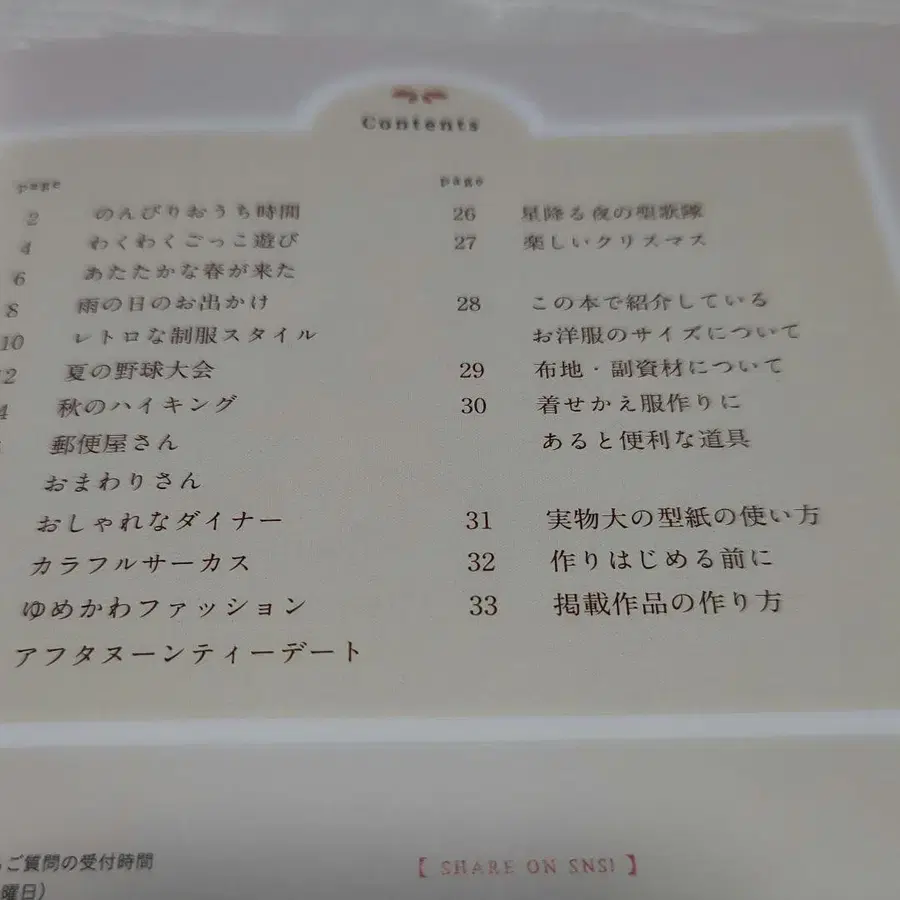 Contents
page
2 のんびりおうち時間
4 わくわくごっこ遊び
6 あたたかな春が来た
8 雨の日のお出かけ
10 レトロな制服スタイル
2 夏の野球大会
4 秋のハイキング
郵便屋さん
おまわりさん
おしゃれなダイナー
カラフルサーカス
ゆめかわファッション
アフタヌーンティーデート
page
26 星降る夜の聖歌隊
27 楽しいクリスマス
28 この本で紹介している
お洋服のサイズについて
29 布地・副資材について
30 着せかえ服作りに
あると便利な道具
31 実物大の型紙の使い方
32 作りはじめる前に
33 掲載作品の作り方
ご質問の受付時間
曜日)
【 SHARE ON SNS! 】